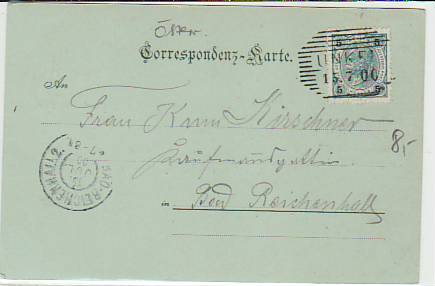 Österr.
Correspondenz-Karte.
5 5
UNKEN
15.7.00
5 5
An
Frau Kirschner
8,-
Kaufmannsgattin
in Bad Reichenhall
BAD REICHENHALL 2.